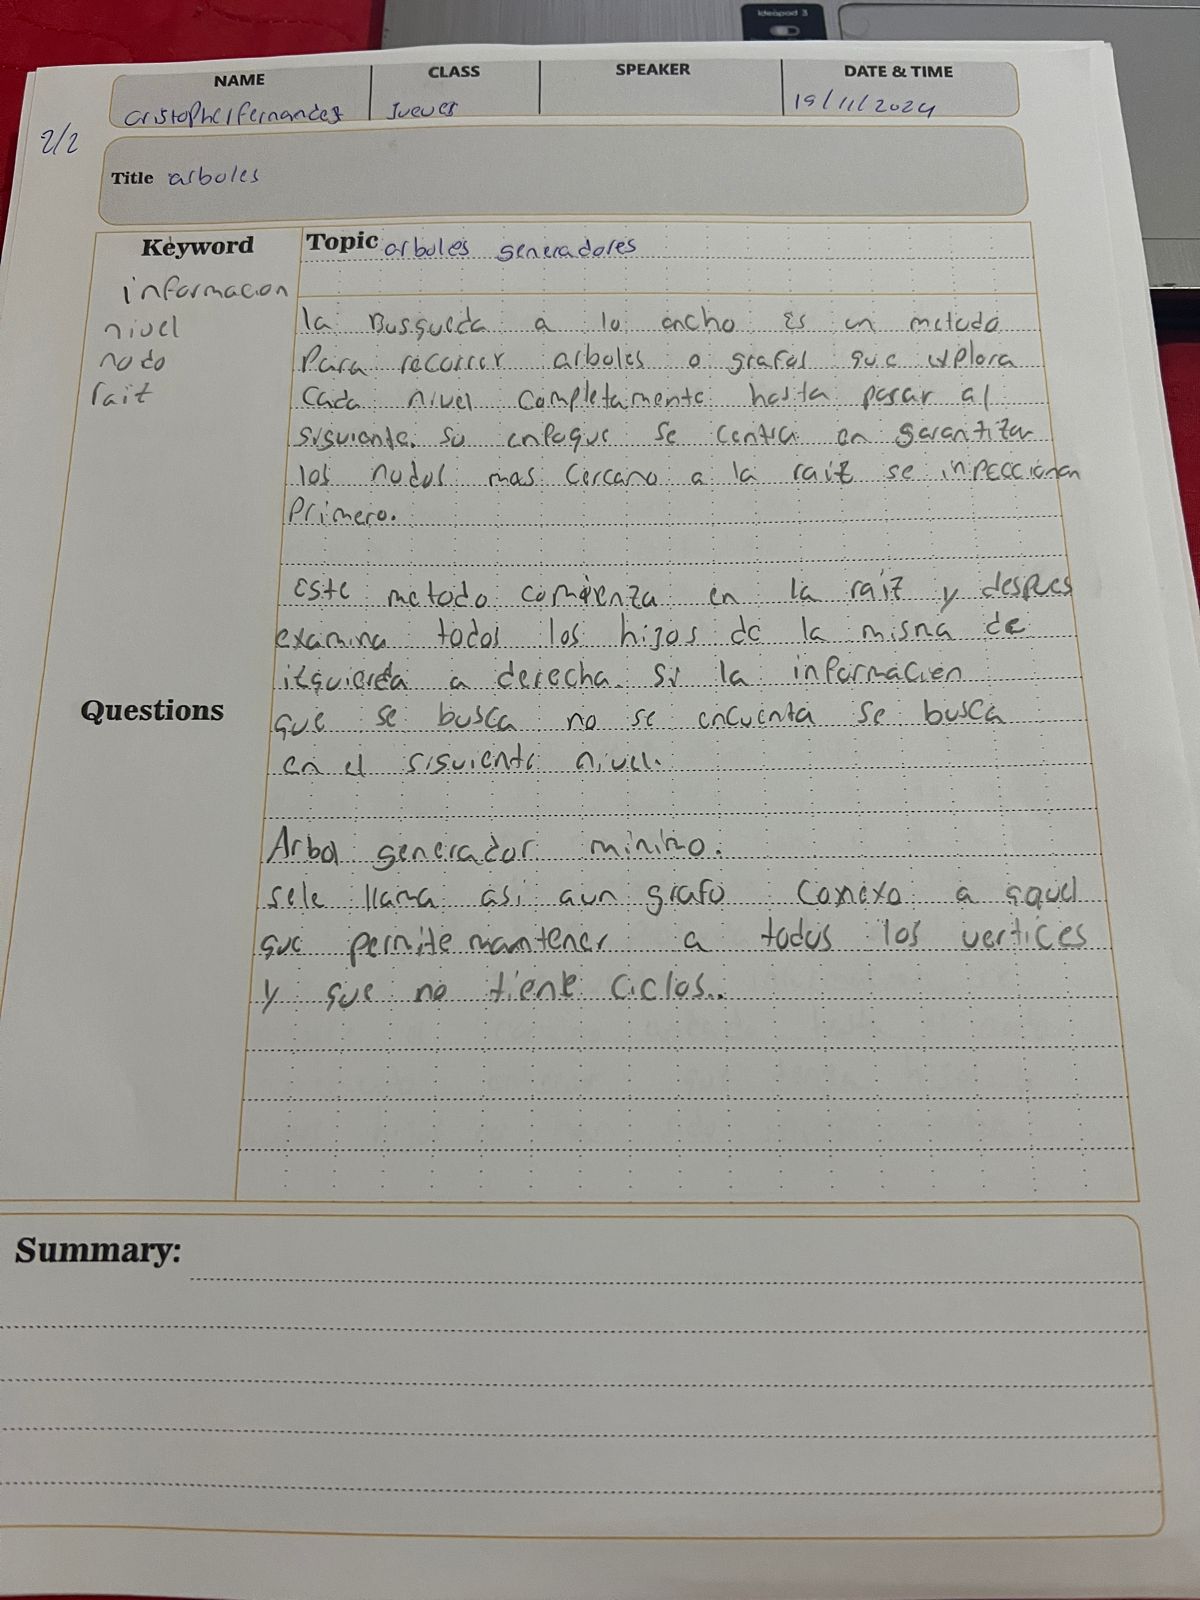 ideapad 3
NAME CLASS SPEAKER DATE & TIME
cristophelfernandez Jueves 19/11/2024
2/2
Title arboles
Keyword
informacion
nivel
nodo
rait
Topic arboles generadores
la Busqueda a lo ancho es un metodo
Para recorrer arboles o grafos que explora
Cada nivel completamente hasta pasar al
siguiente. Su enfoque se centra en garantizar
los nodos mas cercano a la raiz se inpeccionan
Primero.
este metodo comienza en la raiz y despues
examina todos los hijos de la misma de
izquierda a derecha. Si la informacien
que se busca no se encuenta se busca
en el siguiente nivel.
Questions
Arbol generador minimo.
sele llama asi aun grafo conexo a aquel
que permite mantener a todos los vertices
y que no tiene ciclos..
Summary: